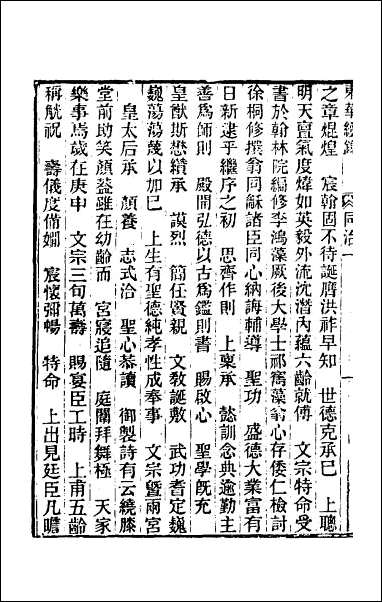 東華續錄 同治一
之章焜煌　宸翰固不待誕膺洪祚早知　世德克承巳　上聰
明天亶氣度煒如英毅外流沈潛內蘊六齡就傅　文宗特命受
書於翰林院編修李鴻藻厥後大學士祁寯藻翁心存倭仁檢討
徐桐修撰翁同龢諸臣同心納誨輔導　聖功　盛德大業富有
日新逮乎繼序之初　思齊作則　上稟承　懿訓念典遜勤主
善爲師則　殿開弘德以古爲鑑則書　賜啟心　聖學旣充
皇猷斯懋纘承　謨烈　簡任賢親　文敎誕敷　武功耆定巍
巍蕩蕩蔑以加巳　上生有聖德純孝性成奉事　文宗暨兩宮
皇太后承　顏養　志式洽　聖心恭讀　御製詩有云繞膝
堂前助笑顏蓋雖在幼齡而　宮寢追隨　庭闈拜舞極　天家
樂事焉歲在庚申　文宗三旬萬壽　賜宴臣工時　上甫五齡
稱觥祝　壽儀度備嫺　宸懷彌暢　特命　上出見廷臣凡瞻